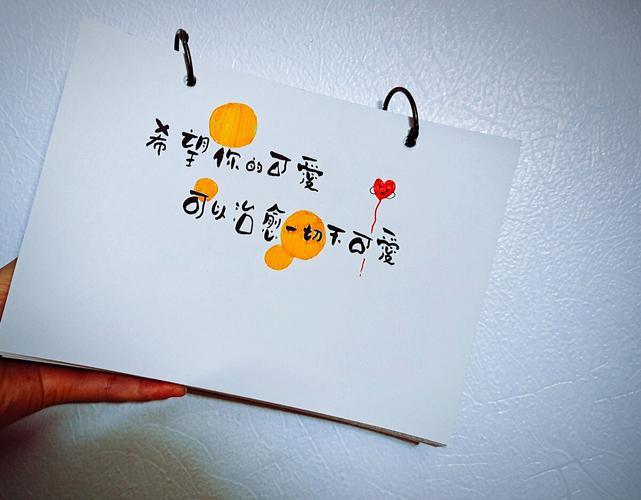 希望你的可愛
可以治愈一切不可愛